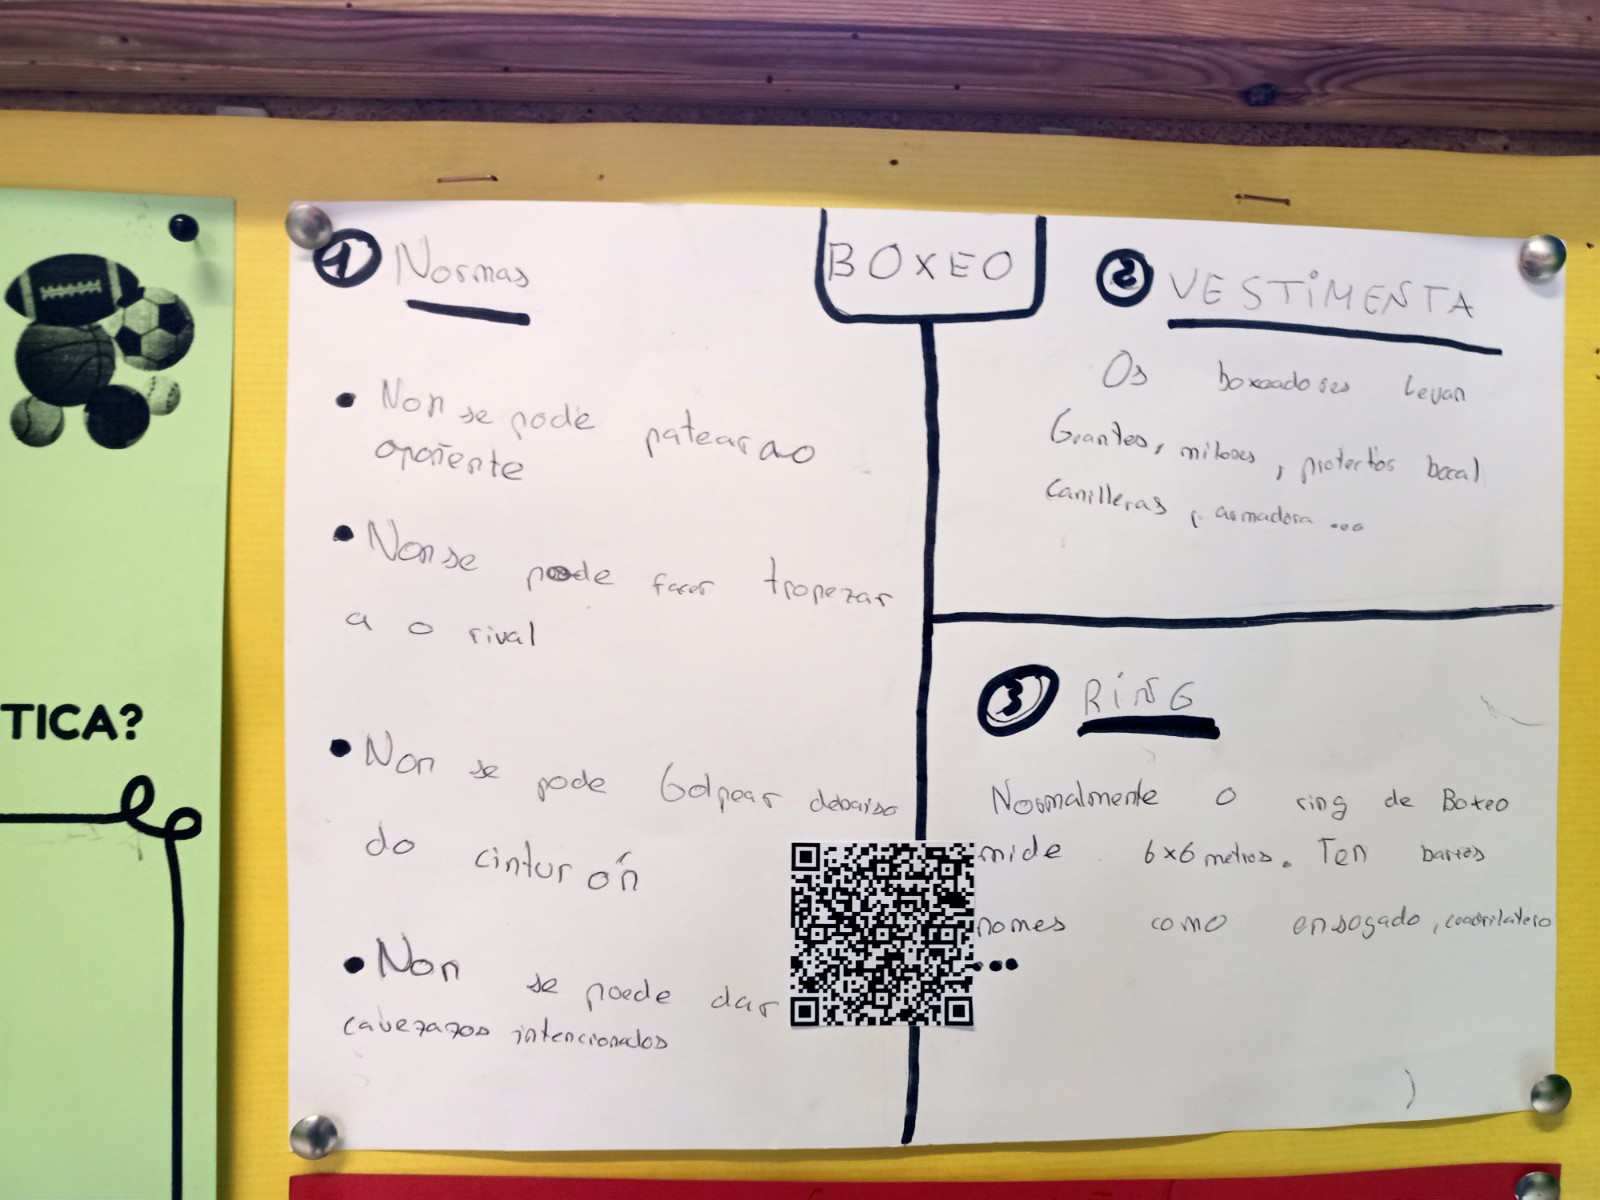 BOXEO
1 Normas
• Non se pode patear ao
oponente
• Non se pode facer tropezar
a o rival
• Non se pode Golpear debaixo
do cinturón
• Non se puede dar
cavezazos intencionados
2 VESTIMENTA
Os boxeadores levan
Guantes, mitones, protectos bocal
canilleras, armadora ...
3 RING
Normalmente o ring de Boxeo
mide 6x6 metros. Ten barios
nomes como ensogado, coadrilatero
...
TICA?